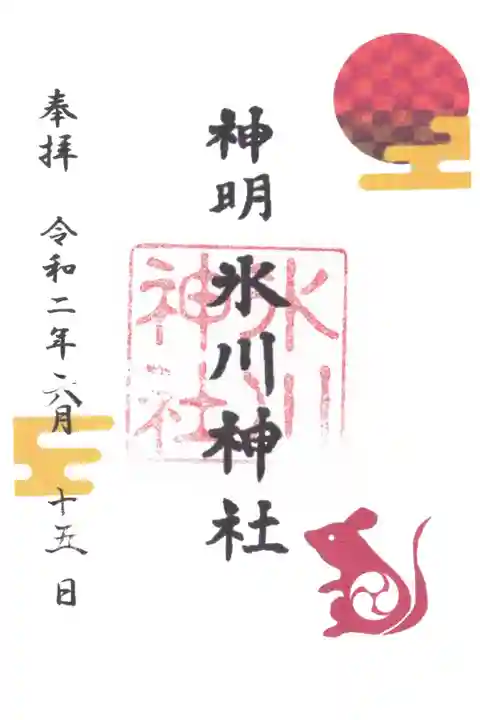 神明
氷川神社
氷川
神社
奉拝 令和二年六月 十五日